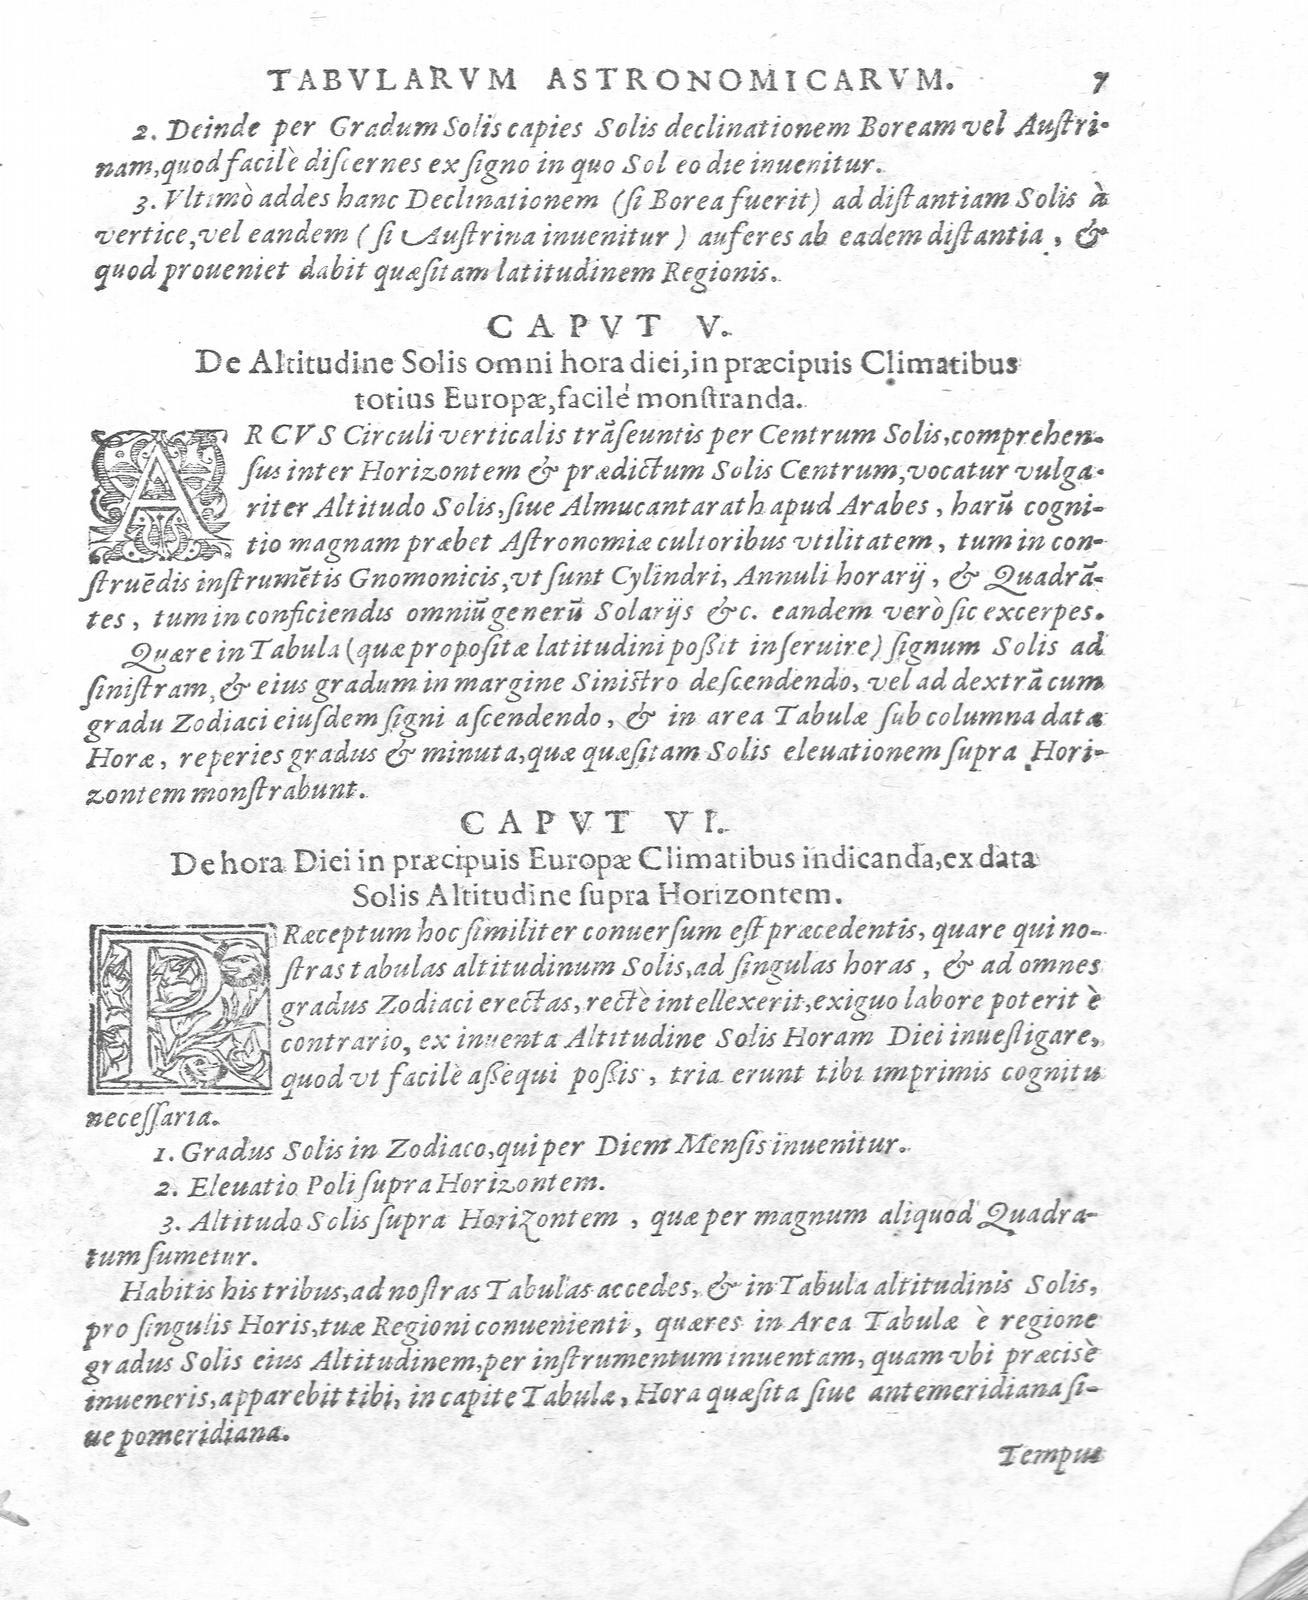 TABVLARVM ASTRONOMICARVM. 7
2. Deinde per Gradum Solis capies Solis declinationem Boream vel Auſtri-
nam, quod facilè diſcernes ex ſigno in quo Sol eo die inuenitur.
3. Vltimò addes hanc Declinationem (ſi Borea fuerit) ad diſtantiam Solis à
vertice, vel eandem (ſi Auſtrina inuenitur) auferes ab eadem diſtantia, &
quod proueniet dabit quæſitam latitudinem Regionis.
CAPVT V.
De Altitudine Solis omni hora diei, in præcipuis Climatibus
totius Europæ, facilé monſtranda.
ARCVS Circuli verticalis trãſeuntis per Centrum Solis, comprehen-
ſus inter Horizontem & prædictum Solis Centrum, vocatur vulga-
riter Altitudo Solis, ſiue Almucantarath apud Arabes, harũ cogni-
tio magnam præbet Aſtronomiæ cultoribus vtilitatem, tum in con-
ſtruẽdis inſtrumẽtis Gnomonicis, vt ſunt Cylindri, Annuli horarij, & Quadrã-
tes, tum in conficiendis omniũ generũ Solarijs &c. eandem verò ſic excerpes.
Quære in Tabula (quæ propoſitæ latitudini poßit inſeruire) ſignum Solis ad
ſiniſtram, & eius gradum in margine Siniſtro deſcendendo, vel ad dextrã cum
gradu Zodiaci eiuſdem ſigni aſcendendo, & in area Tabulæ ſub columna datæ
Horæ, reperies gradus & minuta, quæ quæſitam Solis eleuationem ſupra Hori-
zontem monſtrabunt.
CAPVT VI.
De hora Diei in præcipuis Europæ Climatibus indicanda, ex data
Solis Altitudine ſupra Horizontem.
PRæceptum hoc ſimiliter conuerſum eſt præcedentis, quare qui no-
ſtras tabulas altitudinum Solis, ad ſingulas horas, & ad omnes
gradus Zodiaci erectas, rectè intellexerit, exiguo labore poterit è
contrario, ex inuenta Altitudine Solis Horam Diei inueſtigare,
quod vt facilè aßequi poßis, tria erunt tibi imprimis cognitu
neceſſaria.
1. Gradus Solis in Zodiaco, qui per Diem Menſis inuenitur.
2. Eleuatio Poli ſupra Horizontem.
3. Altitudo Solis ſupra Horizontem, quæ per magnum aliquod Quadra-
tum ſumetur.
Habitis his tribus, ad noſtras Tabulas accedes, & in Tabula altitudinis Solis,
pro ſingulis Horis, tuæ Regioni conuenienti, quæres in Area Tabulæ è regione
gradus Solis eius Altitudinem, per inſtrumentum inuentam, quam vbi præcisè
inueneris, apparebit tibi, in capite Tabulæ, Hora quæſita ſiue antemeridiana ſi-
ue pomeridiana.
Tempus